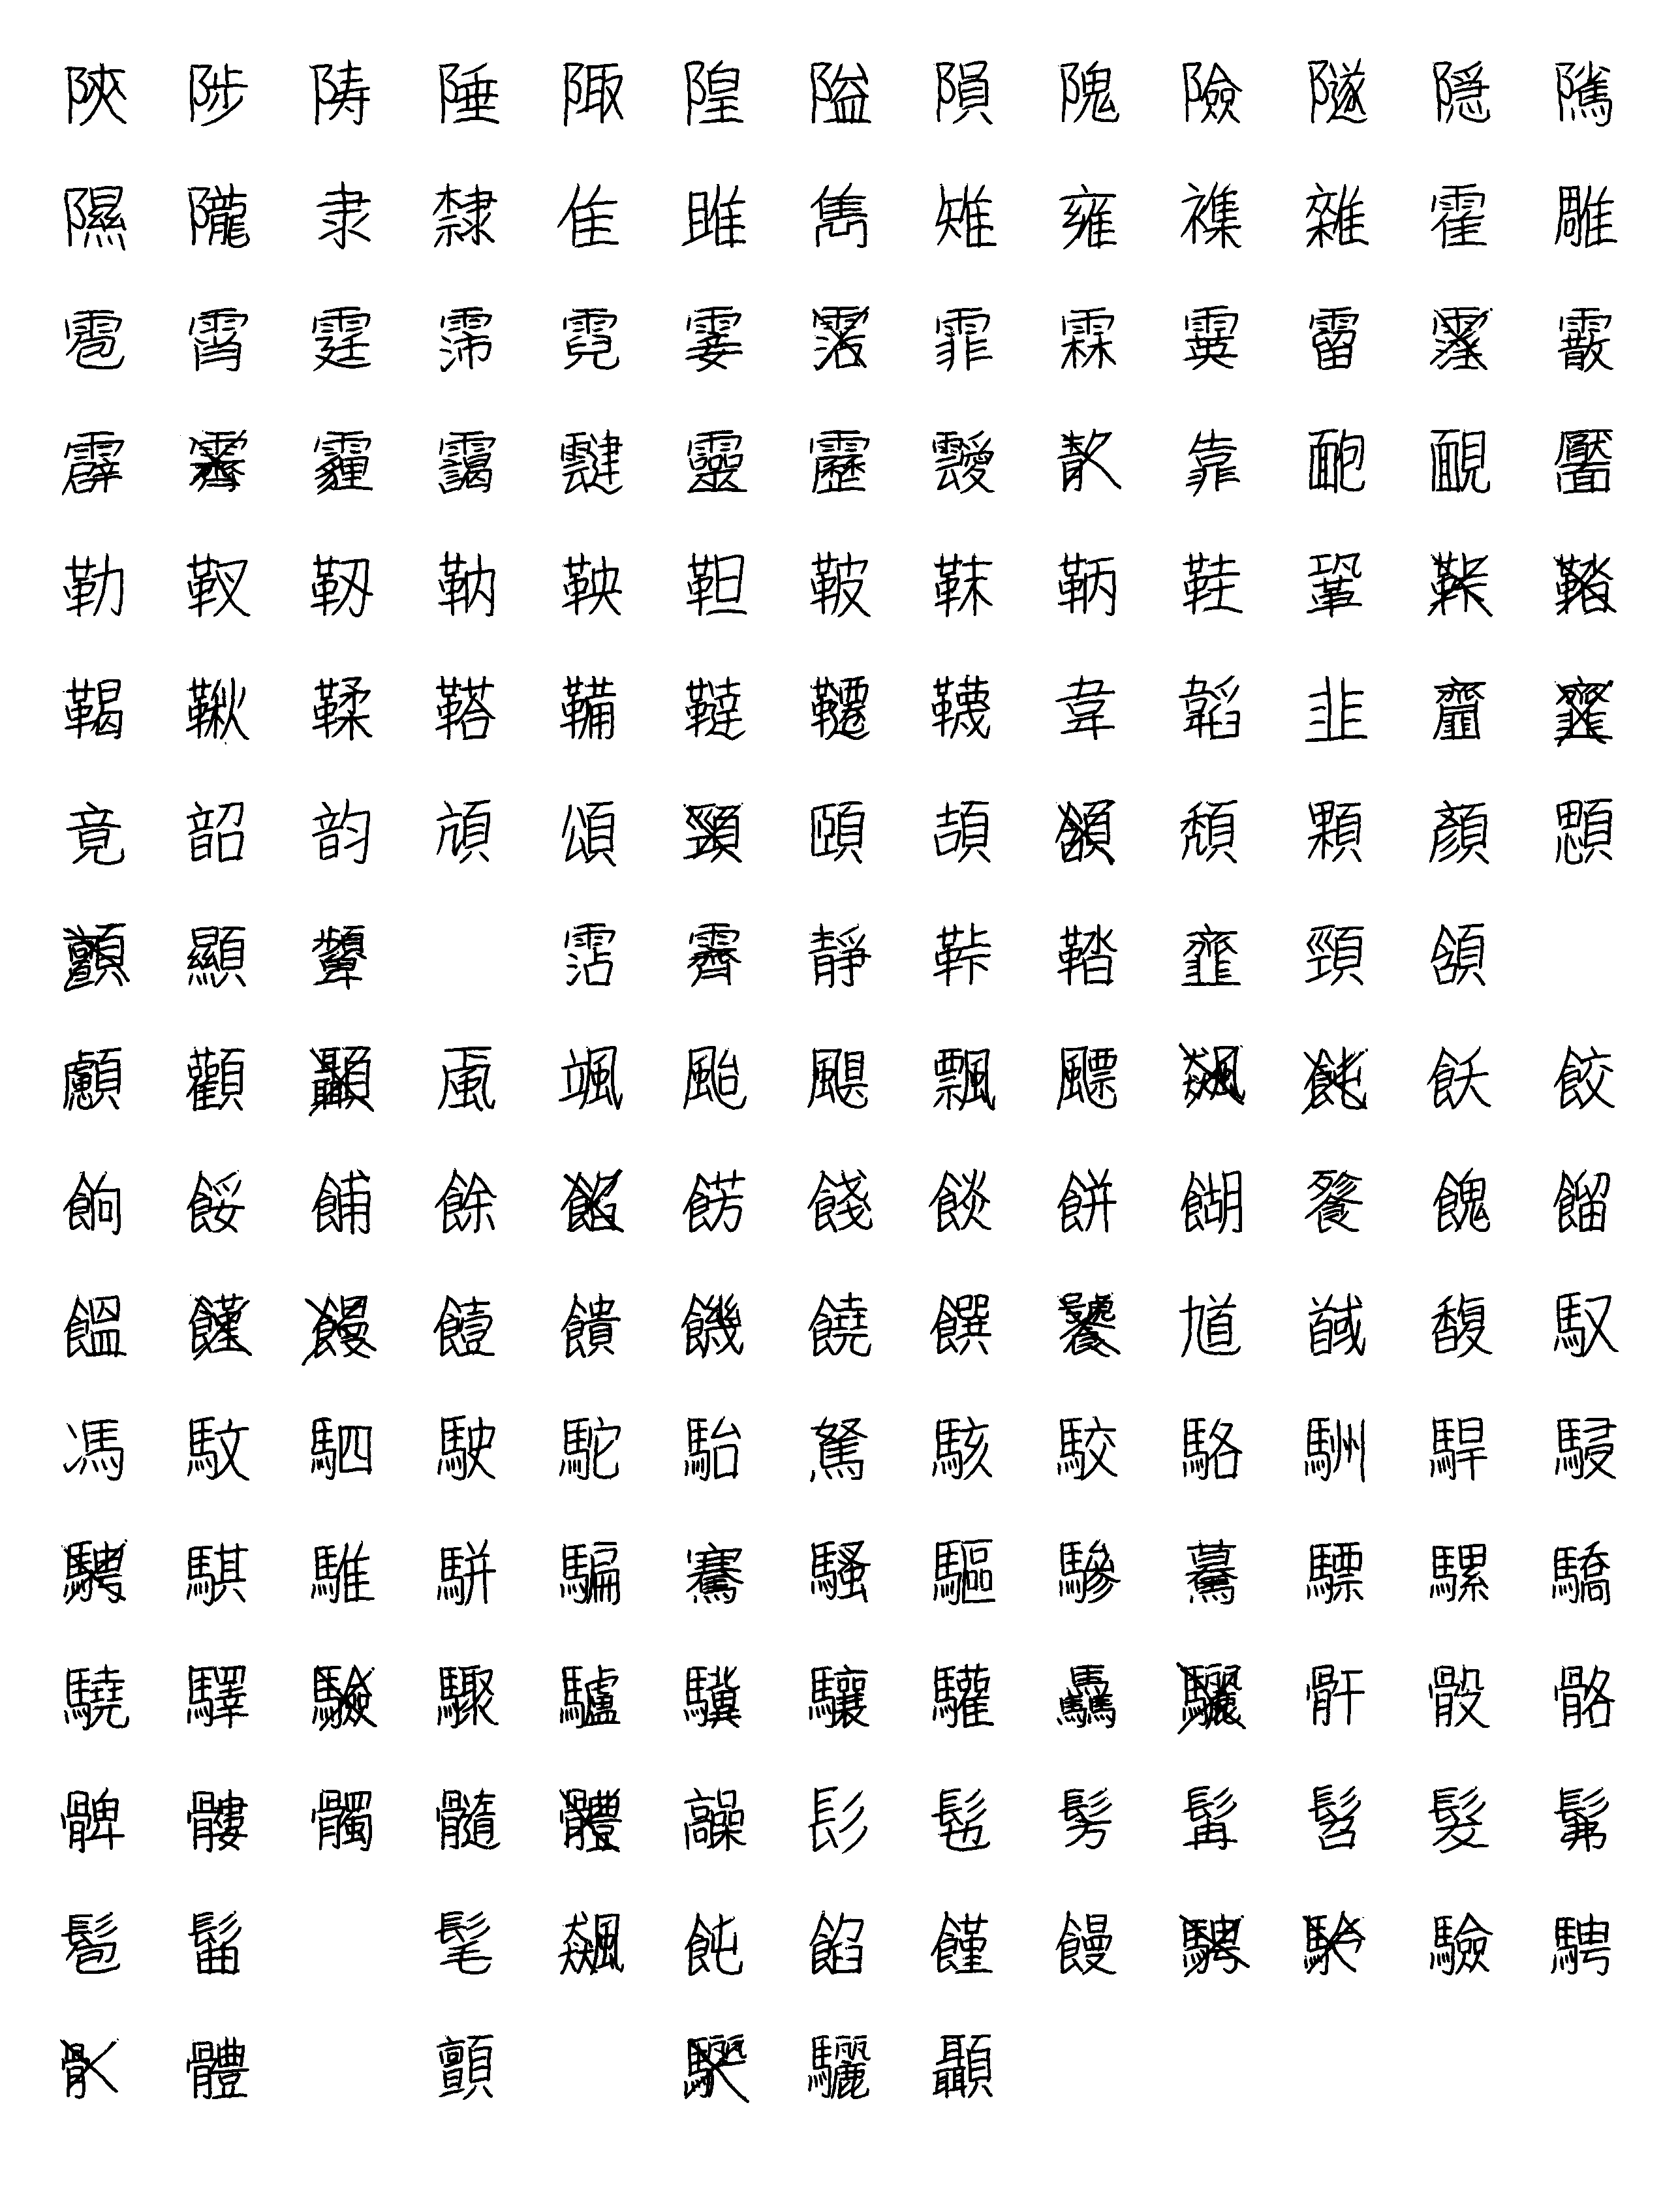 陝陟陦陲陬隍隘隕隗險隧隱隲
隰隴隶隸隹雎雋雉雍襍雜霍雕
雹霄霆霈霓霎霏霖霙霤霰
霹霾靄靆靈靂靉靠靤靦靨
勒靫靱靹鞅靼鞁靺鞆鞋鞏
鞨鞦鞣鞳鞴韃韆韈韋韜韭齏
竟韶韵頏頌頤頡頽顆顏顋
顯顰霑霽靜鞐鞜韲頸頷
顱顴颪颯颱颶飄飃飫餃
餉餒餔餘餝餞餤餠餬餮餽餾
饂饐饋饑饒饌馗馘馥馭
馮馼駟駛駝駘駑駭駮駱駲駻駸
騏騅駢騙騫騷驅驂驀驃騾驕
驍驛驟驢驥驤驩驫骭骰骼
髀髏髑髓髞髟髢髣髯髫髮髴
髱髷髦飆飩餡饉饅驗騁
體顫驪顳